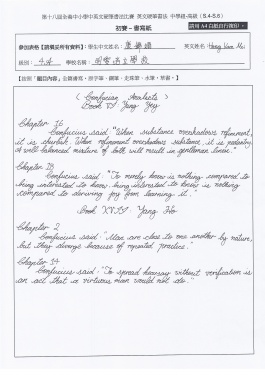 第十八屆全港中小學中英文硬筆書法比賽 英文硬筆書法 中學組-高級 (S.4-S.6)
初賽－書寫紙
請用 A4 白紙自行複印。
參加表格【請填妥所有資料】: 學生中文姓名:
英文姓名:
班別: 4A 學校名稱:
< Confucian Analects >
Book VI Yung Yey
Chapter 16
Confucius said: "When substance overshadows refinement,
it is churlish. When refinement overshadows substance, it is pedantry.
A well-balanced mixture of both will result in gentleman linen."
Chapter 18
Confucius said: "To merely know is nothing compared to
being interested to know; being interested to know is nothing
compared to deriving joy from learning it."
Book XVII Yang Ho
Chapter 2
Confucius said: "Men are close to one another by nature,
but they diverge because of repeated practice."
Chapter 14
Confucius said: "To spread hearsay without verification is
an act that a virtuous man would not do."